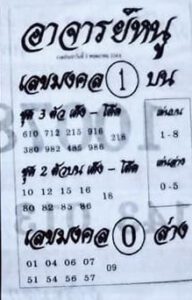 อาจารย์หนู
เลขมงคล 1 บน
ชุด 3 ตัว เต็ง - โต๊ด
610 712 215 916
218
380 982 485 986
เด่นบน
1-8
ชุด 2 ตัวบน เต็ง - โต๊ด
10 12 15 16
18
80 82 85 86
เด่นล่าง
0-5
เลขมงคล 0 ล่าง
01 04 06 07
09
51 54 56 57